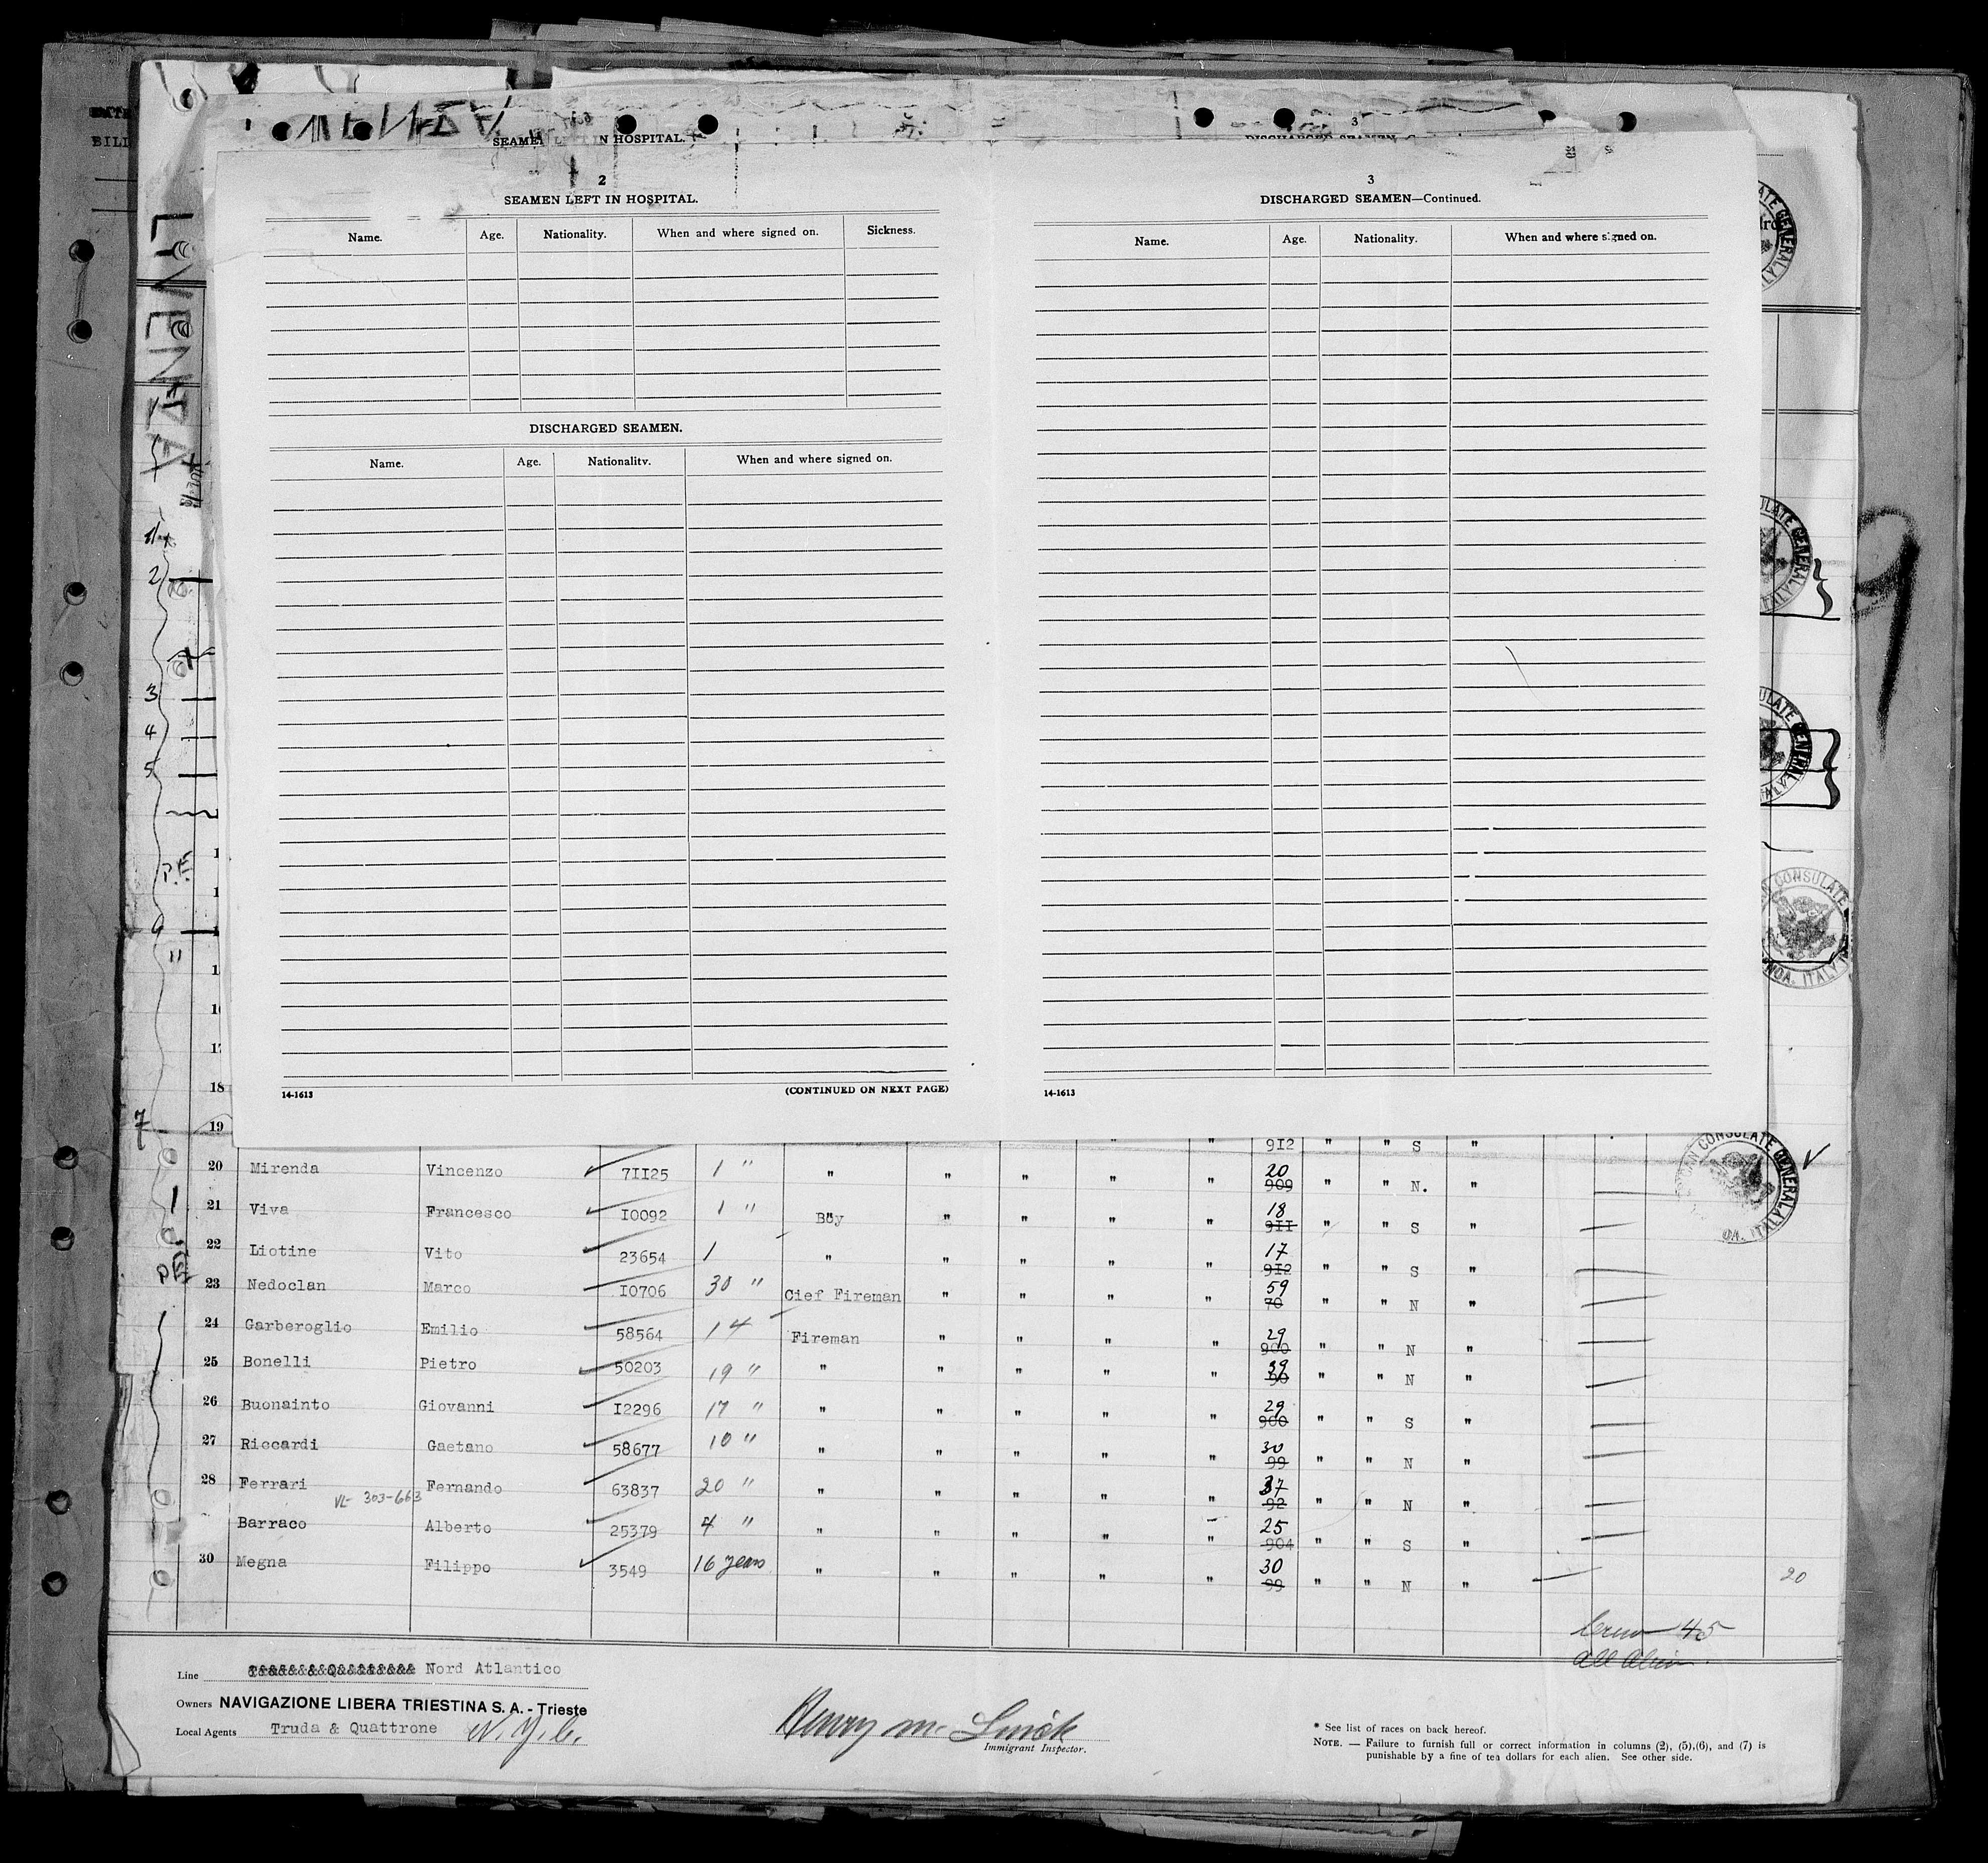 SEAMEN IN HOSPITAL.
3
2
SEAMEN LEFT IN HOSPITAL.
Name. Age. Nationality. When and where signed on. Sickness.
DISCHARGED SEAMEN.
Name. Age. Nationality. When and where signed on.
14-1613 (CONTINUED ON NEXT PAGE)
3
DISCHARGED SEAMEN—Continued.
Name. Age. Nationality. When and where signed on.
14-1613
LIVENZA
BILL
2
3
4
5
P.E.
9
"
18
7
19 " " 912 " " S "
20 Mirenda Vincenzo 7II25 1 " " " " " " 20 909 " " N. "
21 Viva Francesco I0092 1 " Boy " " " " 18 9II " " S "
22 Liotine Vito 23654 1 " " " " " 17 9I2 " " S "
23 Nedoclan Marco I0706 30 " Cief Fireman " " " " 59 70 " " N "
24 Garberoglio Emilio 58564 14 Fireman " " " " 29 900 " " N "
25 Bonelli Pietro 50203 19 " " " " " " 39 90 " " N "
26 Buonainto Giovanni I2296 17 " " " " " " 29 900 " " S "
27 Riccardi Gaetano 58677 10 " " " " " " 30 99 " " N "
28 Ferrari Fernando 63837 20 " " " " " " 37 92 " " N "
VL- 303-663
Barraco Alberto 25379 4 " " " " " " 25 904 " " S "
30 Megna Filippo 3549 16 years " " " " " 30 99 " " N "
20
Crew 45
All Alien
Line Nord Atlantico
Owners NAVIGAZIONE LIBERA TRIESTINA S. A. - Trieste
Local Agents Truda & Quattrone N.Y.C.
Immigrant Inspector.
* See list of races on back hereof.
NOTE. — Failure to furnish full or correct information in columns (2), (5),(6), and (7) is
punishable by a fine of ten dollars for each alien. See other side.
CONSULATE GENERAL
ITALY
9